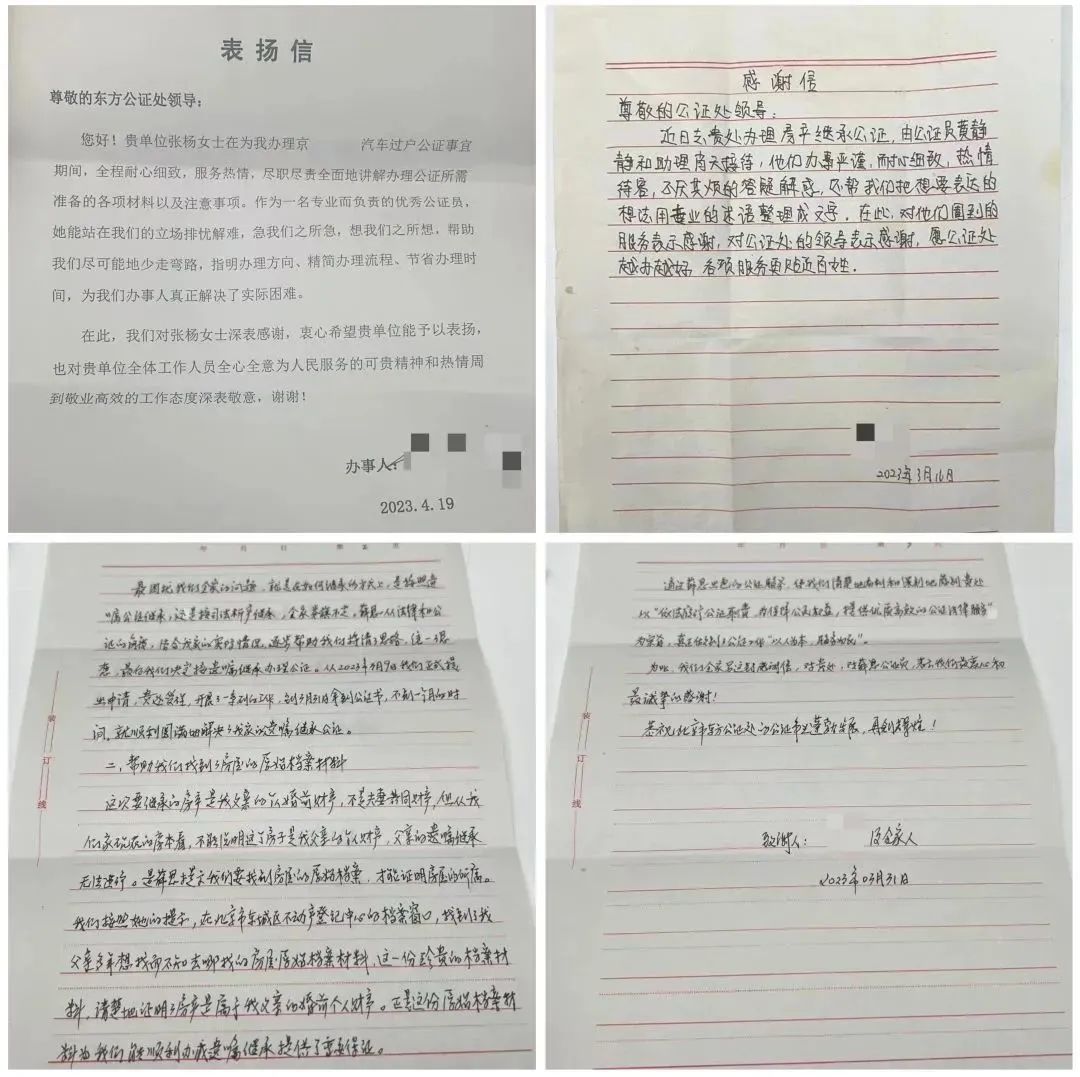 表扬信
尊敬的东方公证处领导：
您好！贵单位张杨女士在为我办理京 汽车过户公证事宜
期间，全程耐心细致，服务热情，尽职尽责全面地讲解办理公证所需
准备的各项材料以及注意事项。作为一名专业而负责的优秀公证员，
她能站在我们的立场排忧解难，急我们之所急，想我们之所想，帮助
我们尽可能地少走弯路，指明办理方向、精简办理流程、节省办理时
间，为我们办事人真正解决了实际困难。
在此，我们对张杨女士深表感谢，衷心希望贵单位能予以表扬，
也对贵单位全体工作人员全心全意为人民服务的可贵精神和热情周
到敬业高效的工作态度深表敬意，谢谢！
办事人：
2023.4.19
感谢信
尊敬的公证处领导：
近日去贵处办理房产继承公证，由公证员黄静
静和助理肖天接待，他们办事严谨，耐心细致，热情
待客，不厌其烦的答疑解惑，还帮我们把想要表达的
想法用专业的术语整理成文字。在此，对他们周到的
服务表示感谢，对公证处的领导表示感谢，愿公证处
越办越好，各项服务更贴近百姓。
2023年3月16日
年 月 日 第 2 页
最困扰我们全家的问题，就是在如何继承的方式上，是按照遗
嘱公证继承，还是按司法析产继承，全家举棋不定，薛思从法律和公
证的角度，结合我家的实际情况，逐步帮助我们捋清了思路，统一了思
想，最后我们决定按遗嘱继承办理公证。从2023年3月9日我们正式提
出申请，贵处受理，开展了一系列的工作，到3月31日拿到公证书，不到一个月的时
间，就顺利圆满地解决了我家的遗嘱继承公证。
二、帮助我们找到了房屋的原始档案材料
这次要继承的房产是我父亲的个人婚前财产，不是夫妻共同财产，但从我
们家现在的房本看，不能说明这个房子是我父亲的个人财产，父亲的遗嘱继承
无法进行。是薛思提示我们要找到房屋的原始档案，才能证明房屋的所属。
我们按照她的提示，在北京市东城区不动产登记中心的档案窗口，找到了我
父亲多年想找而不知去哪找的房屋原始档案材料，这一份珍贵的档案材
料，清楚地证明了房产是属于我父亲的婚前个人财产。正是这份原始档案材
料为我们能顺利办成遗嘱继承提供了重要保证。
装
订
线
年 月 日 第 页
通过薛思出色的公证服务，使我们清楚地看到和深刻地感到贵处
以“依法履行公证职责，为保障公民权益，提供优质高效的公证法律服务”
为宗旨，真正做到了公证工作“以人为本，服务为民”。
为此，我们全家写这封感谢信，对贵处，对薛思公证员，表示我们最衷心和
最诚挚的感谢！
恭祝北京市东方公证处的公证事业蓬勃发展，再创辉煌！
装
订
线
致谢人： 及全家人
2023年03月31日